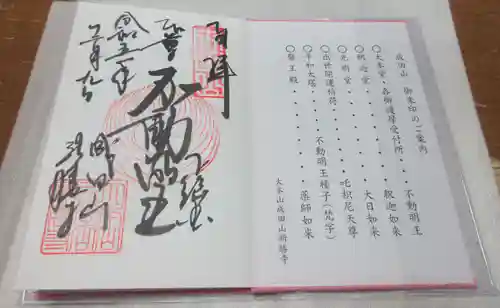 奉拝
不動明王
成田山
成田山　御朱印のご案内
○大本堂・各御護摩受付所・・不動明王
○釈迦堂・・・・・・・・釈迦如来
○光明堂・・・・・・・・大日如来
○出世開運稲荷・・・・吒枳尼天尊
○平和大塔・・不動明王種子（梵字）
○醫王殿・・・・・・・・薬師如来
大本山成田山新勝寺